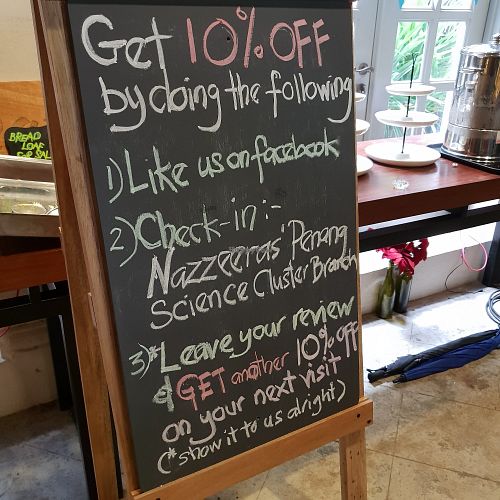 Get 10% OFF
by doing the following
1) Like us on facebook
2) Check-in :-
Nazzeeras' Penang
Science Cluster Branch
3)* Leave your review
& GET another 10% OFF
on your next visit
(* show it to us alright)
BREAD
LOAF
FOR SALE